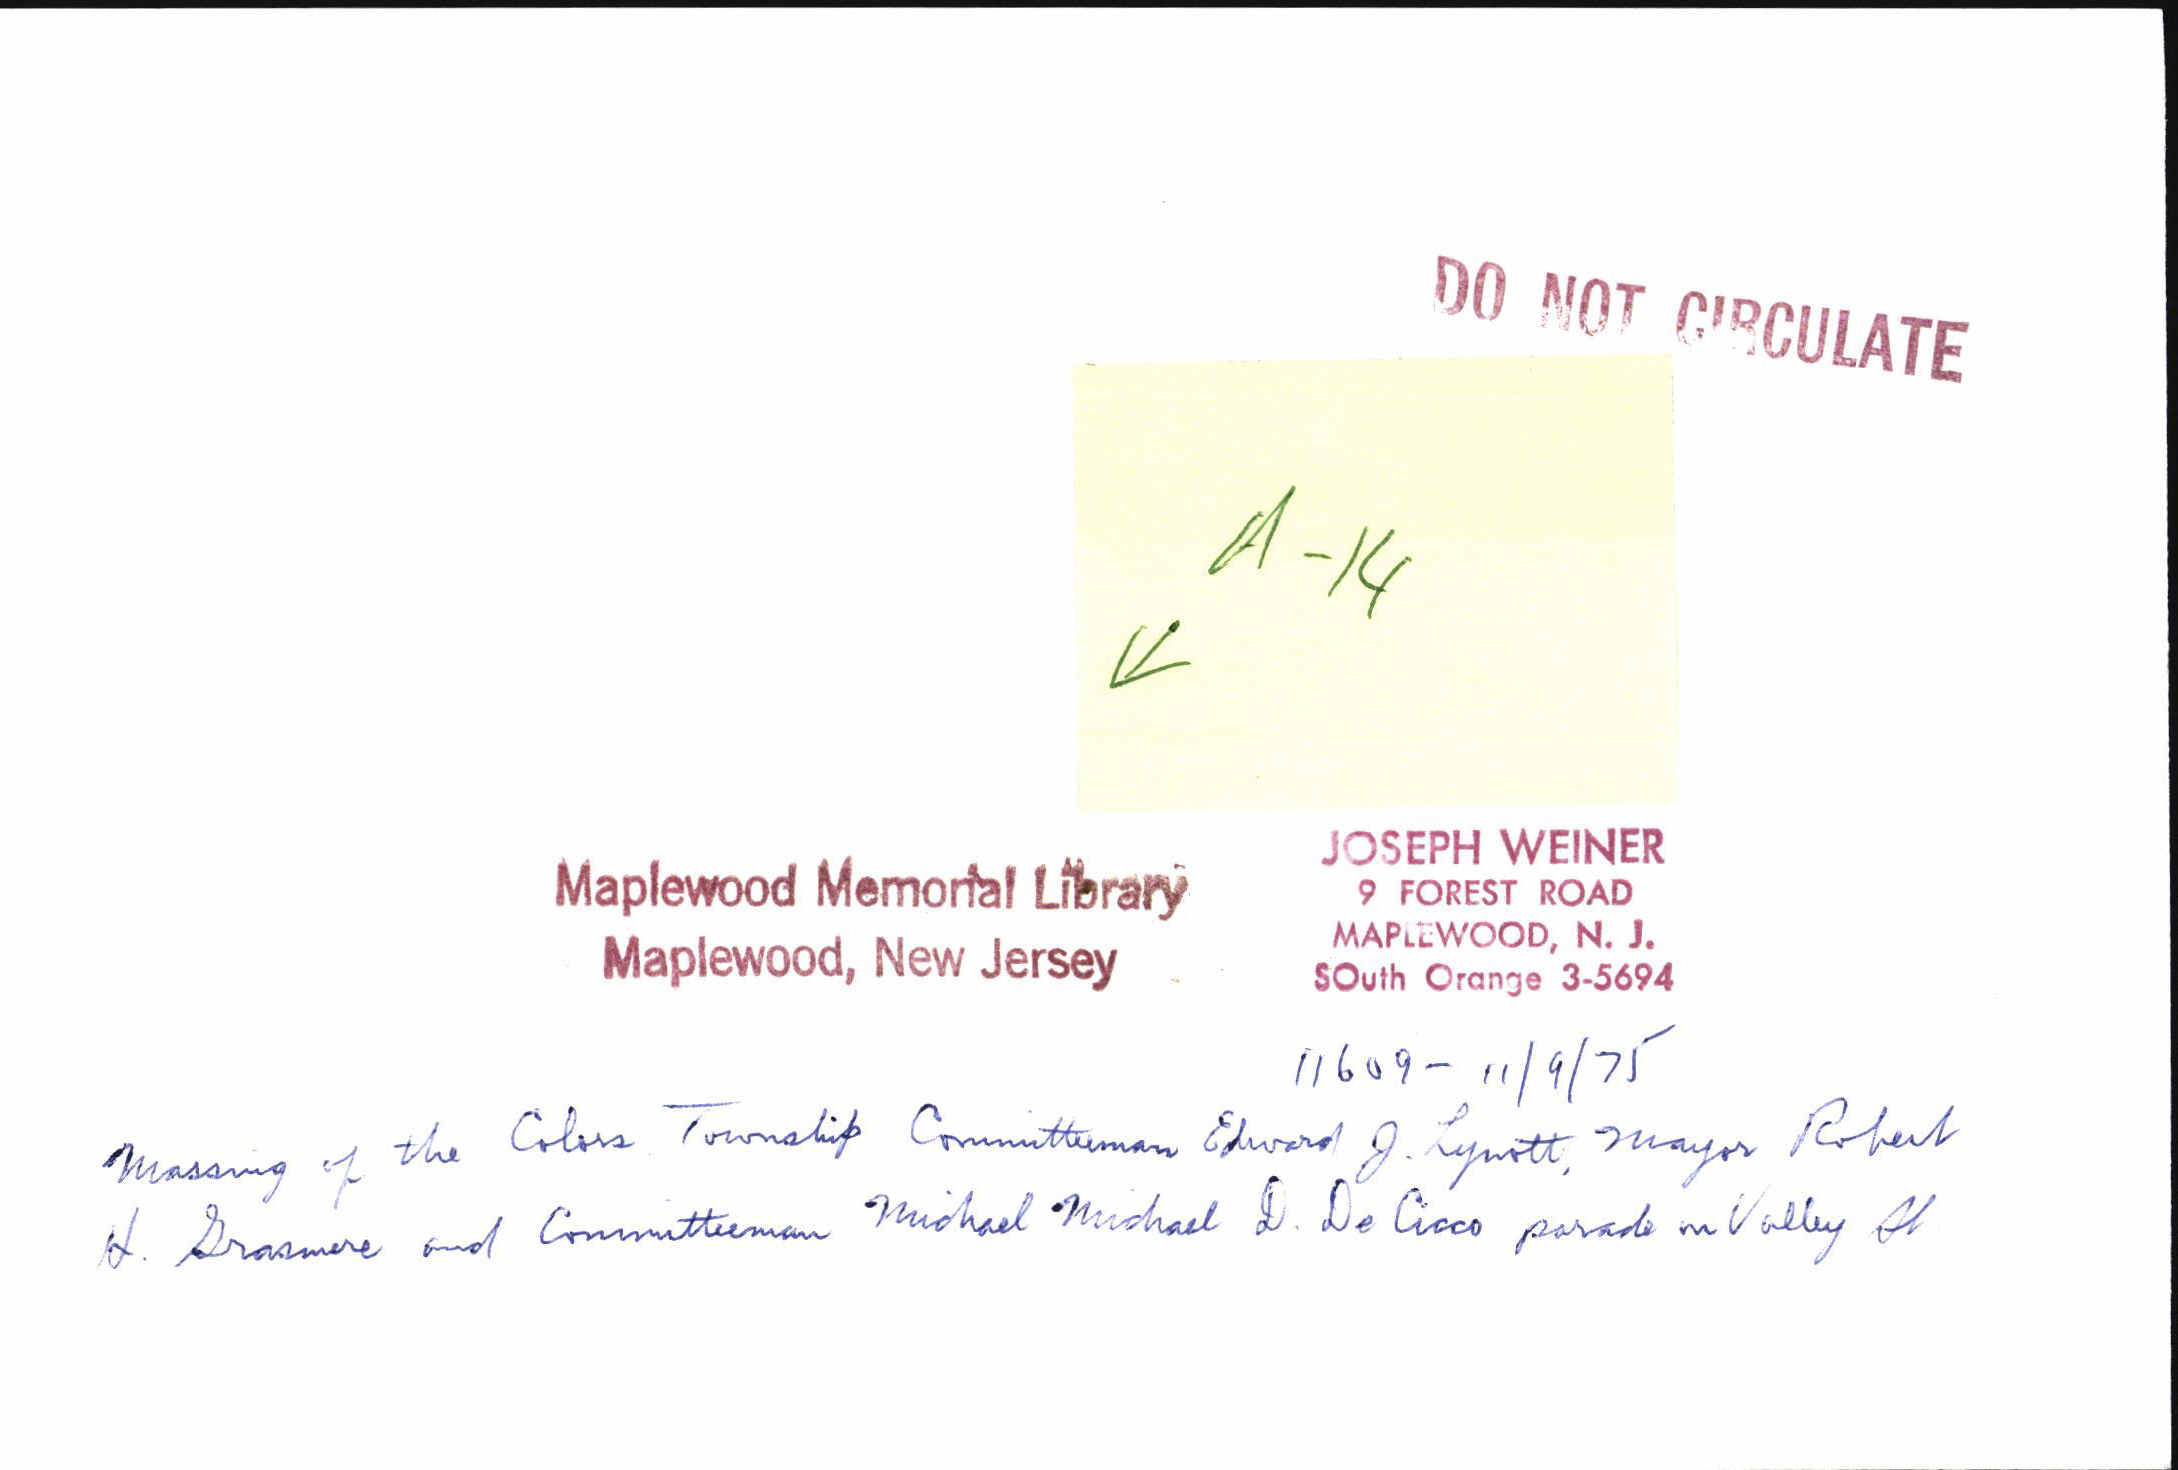 DO NOT CIRCULATE
A-14
Maplewood Memorial Library
Maplewood, New Jersey
JOSEPH WEINER
9 FOREST ROAD
MAPLEWOOD, N. J.
SOuth Orange 3-5694
11609- 11/9/75
Massing of the Colors Township Committeeman Edward J. Lynott, Mayor Robert
H. Grasmere and Committeeman Michael Michael D. De Cicco parade on Valley St.